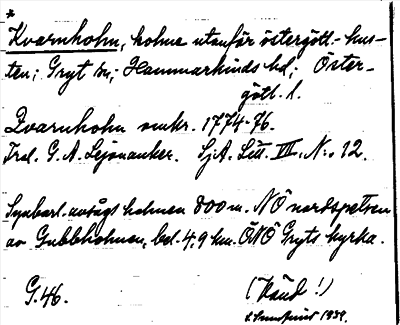 *
Kvarnholm, holme utanför östergötl.- kus-
ten; Gryt sn; Hammarkinds hd; Öster-
götl. l.
Qvarnholm omkr. 1774-76.
Fred. G. A. Lejonanker. SjA. Litt. VII. N:o 12.
Synbarl. avsågs holmen 800 m. NÖ nordspetsen
av Gubbholmen, bel. 4,9 km. ÖNÖ Gryts kyrka.
G. 46. (Känd!)
1939.